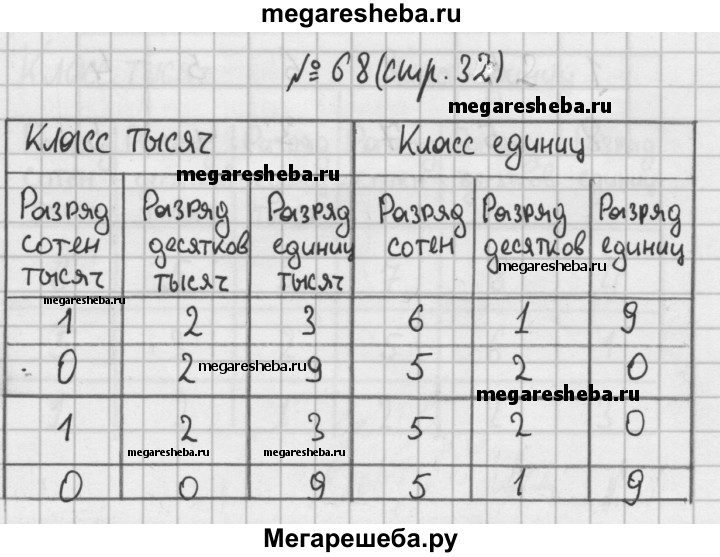 megaresheba.ru
№ 68 (стр. 32)
megaresheba.ru
Класс тысяч Класс единиц
megaresheba.ru
Разряд сотен тысяч Разряд десятков тысяч Разряд единиц тысяч Разряд сотен Разряд десятков Разряд единиц
megaresheba.ru
megaresheba.ru
1 2 3 6 1 9
0 2 9 5 2 0
megaresheba.ru
megaresheba.ru
1 2 3 5 2 0
megaresheba.ru megaresheba.ru
0 0 9 5 1 9
Мегарешеба.ру